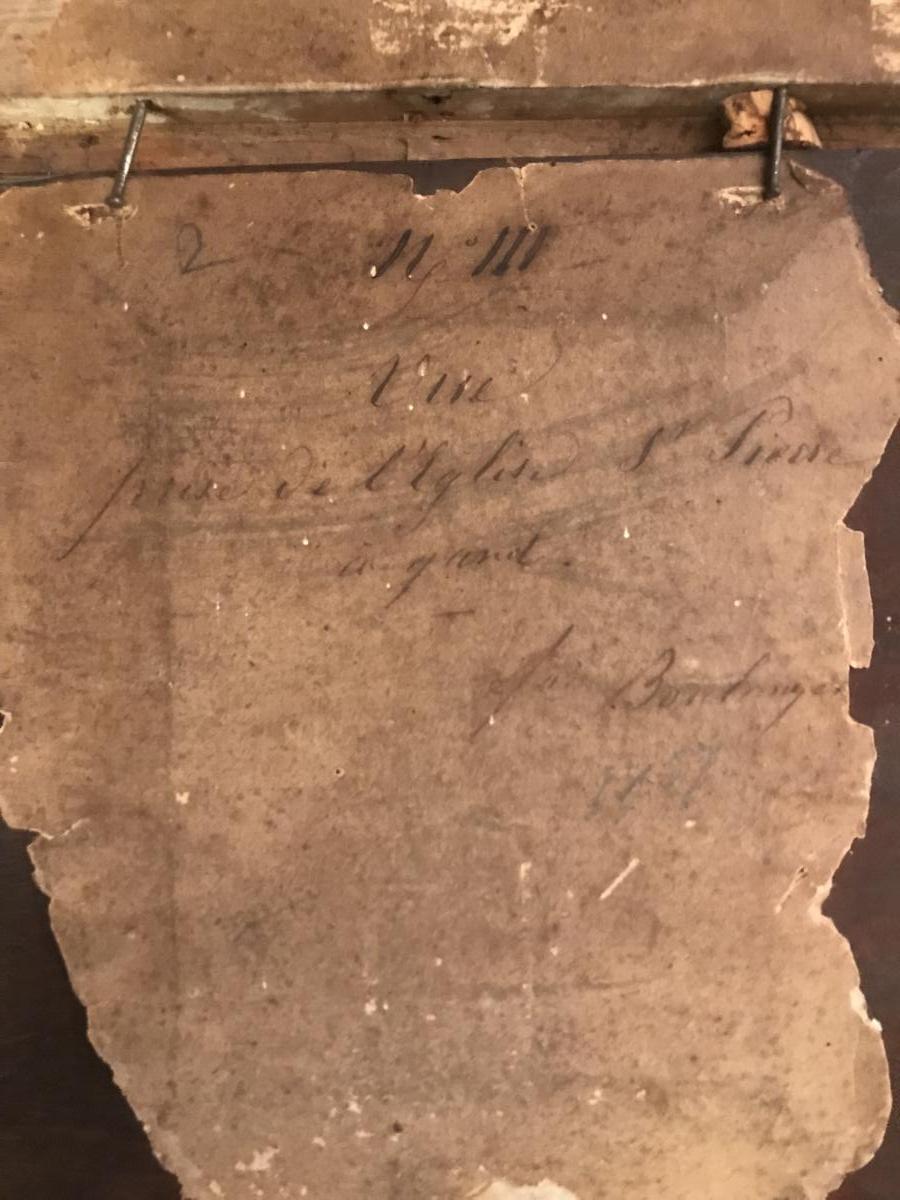 2 N° III
Vue
prise de l'Eglise St Pierre
a gand.
par Boulanger